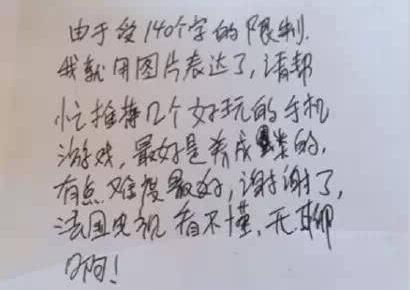 由于受140个字的限制.
我就用图片表达了,请帮
忙推荐几个好玩的手机
游戏,最好是养成类的.
有点难度最好,谢谢了,
法国电视看不懂,无聊
啊!